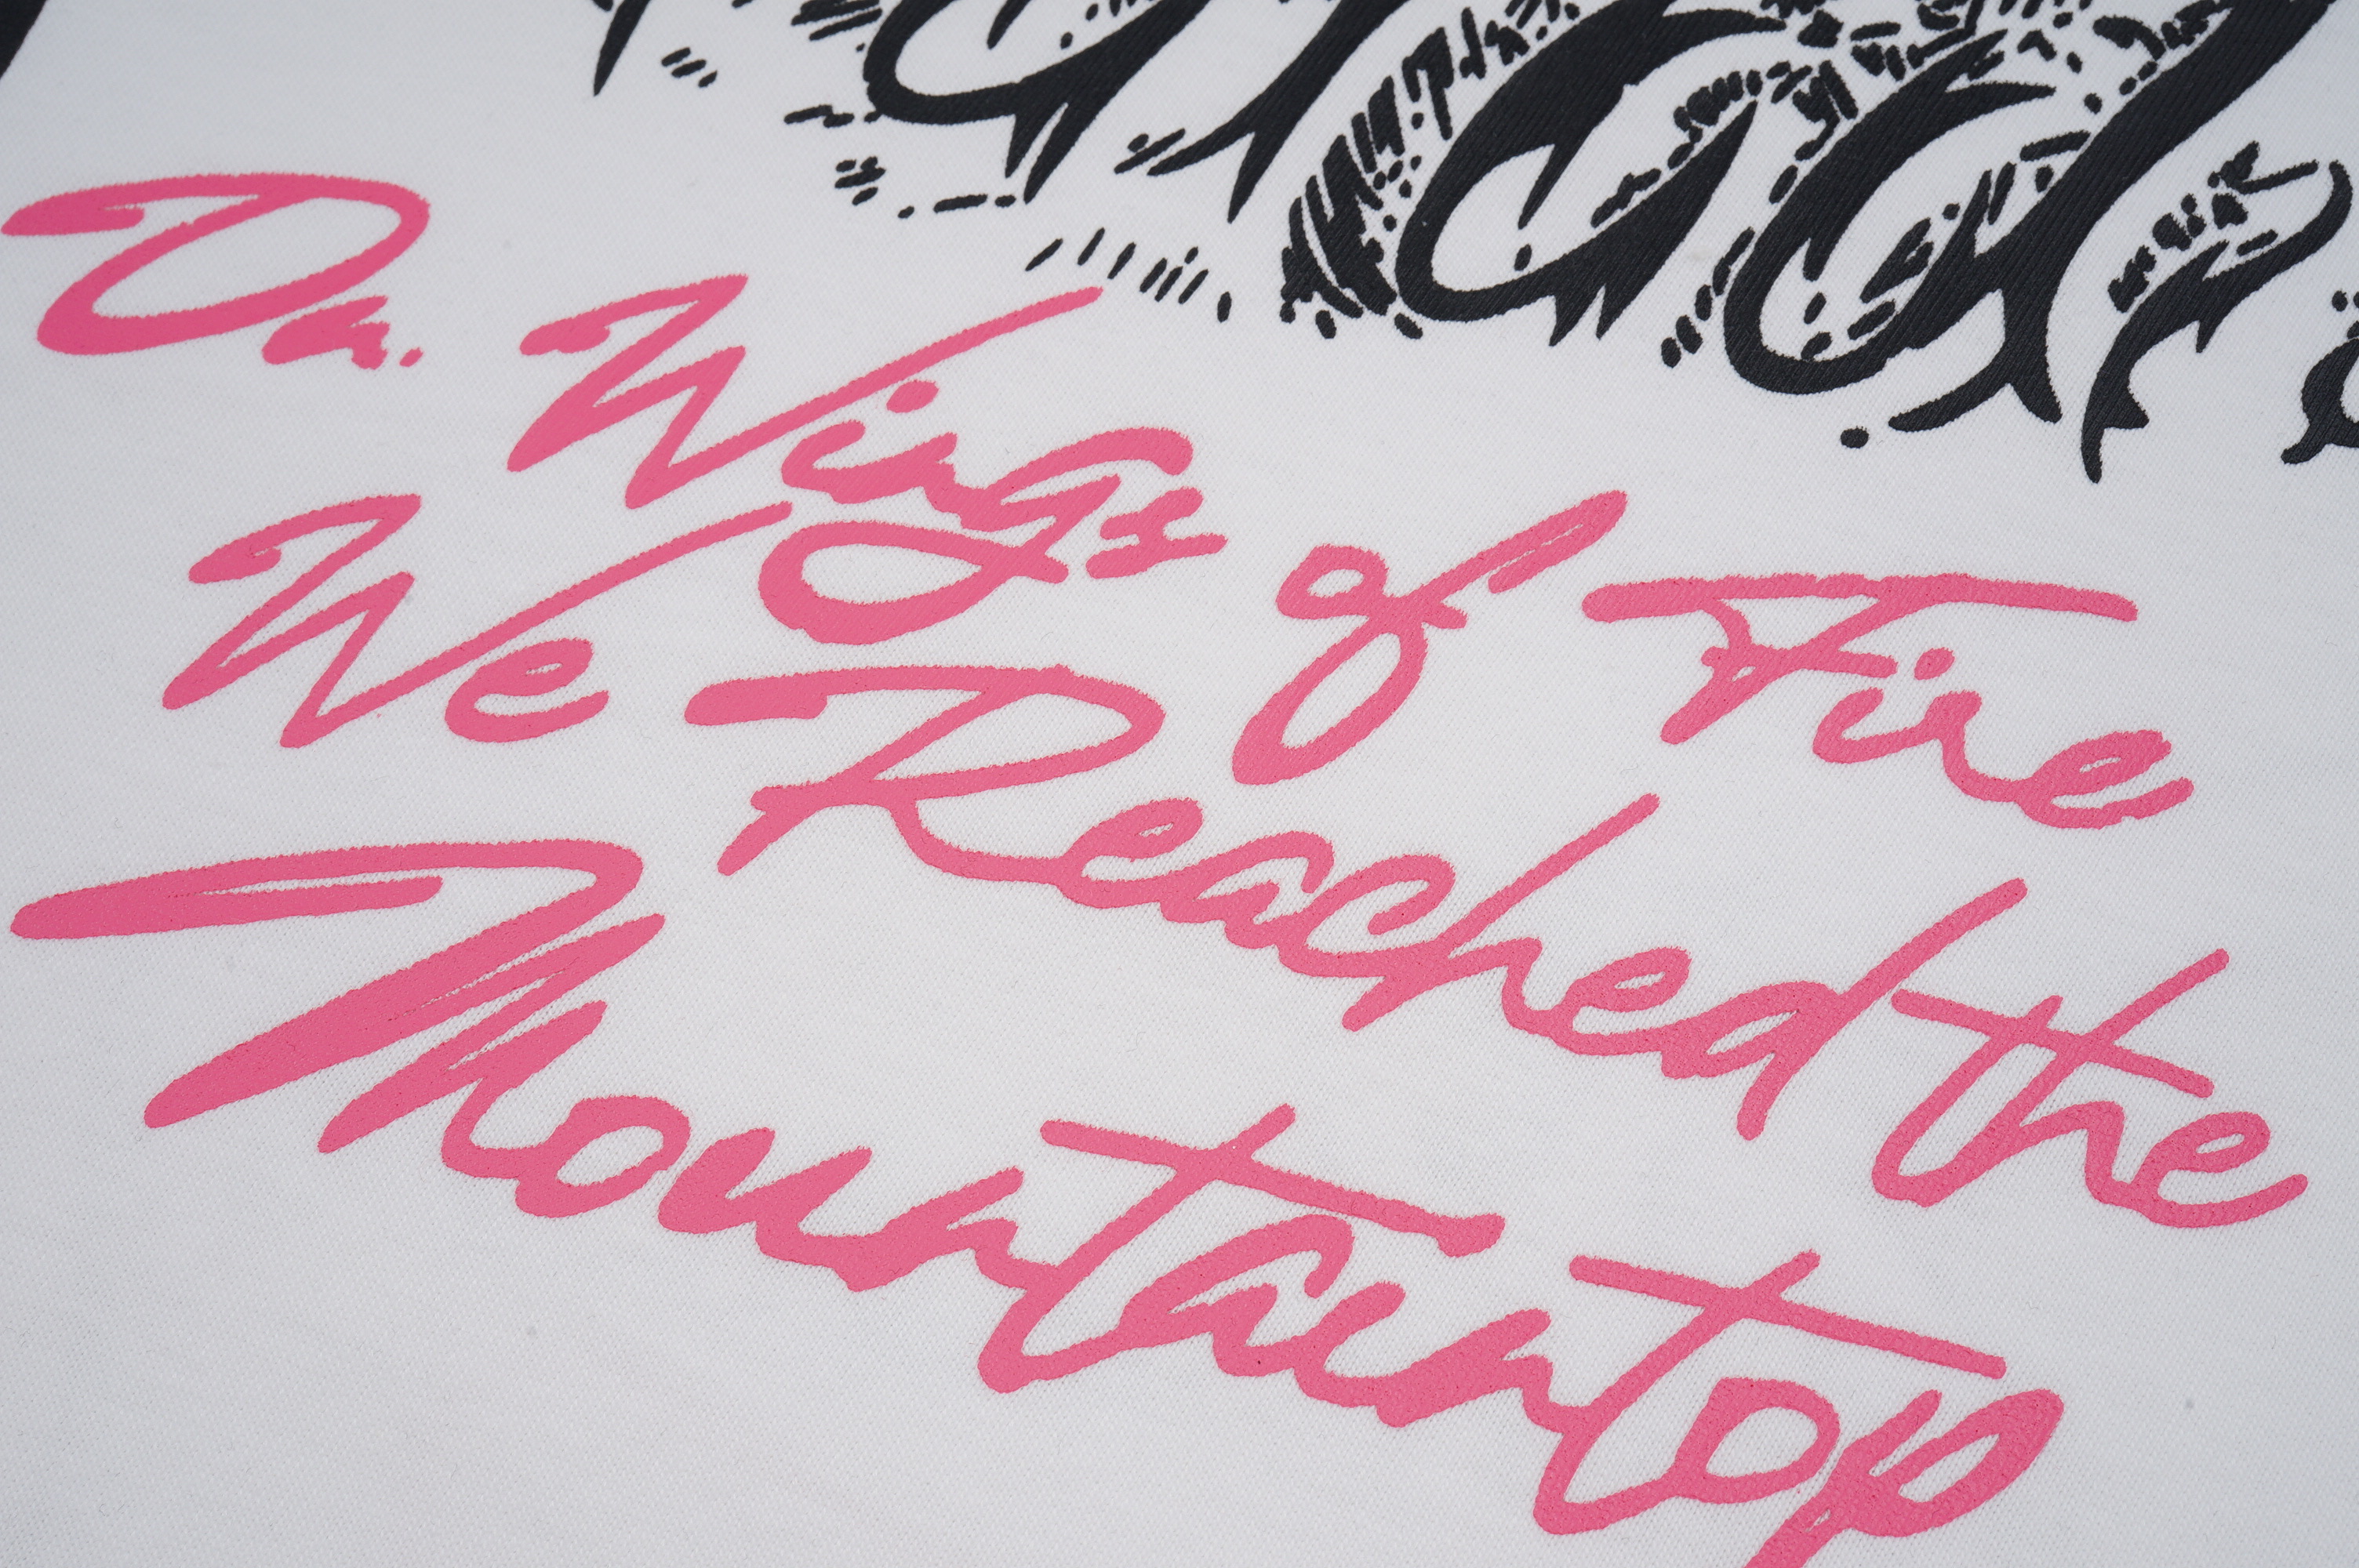 On Wings of Fire
We Reached the
Mountaintop